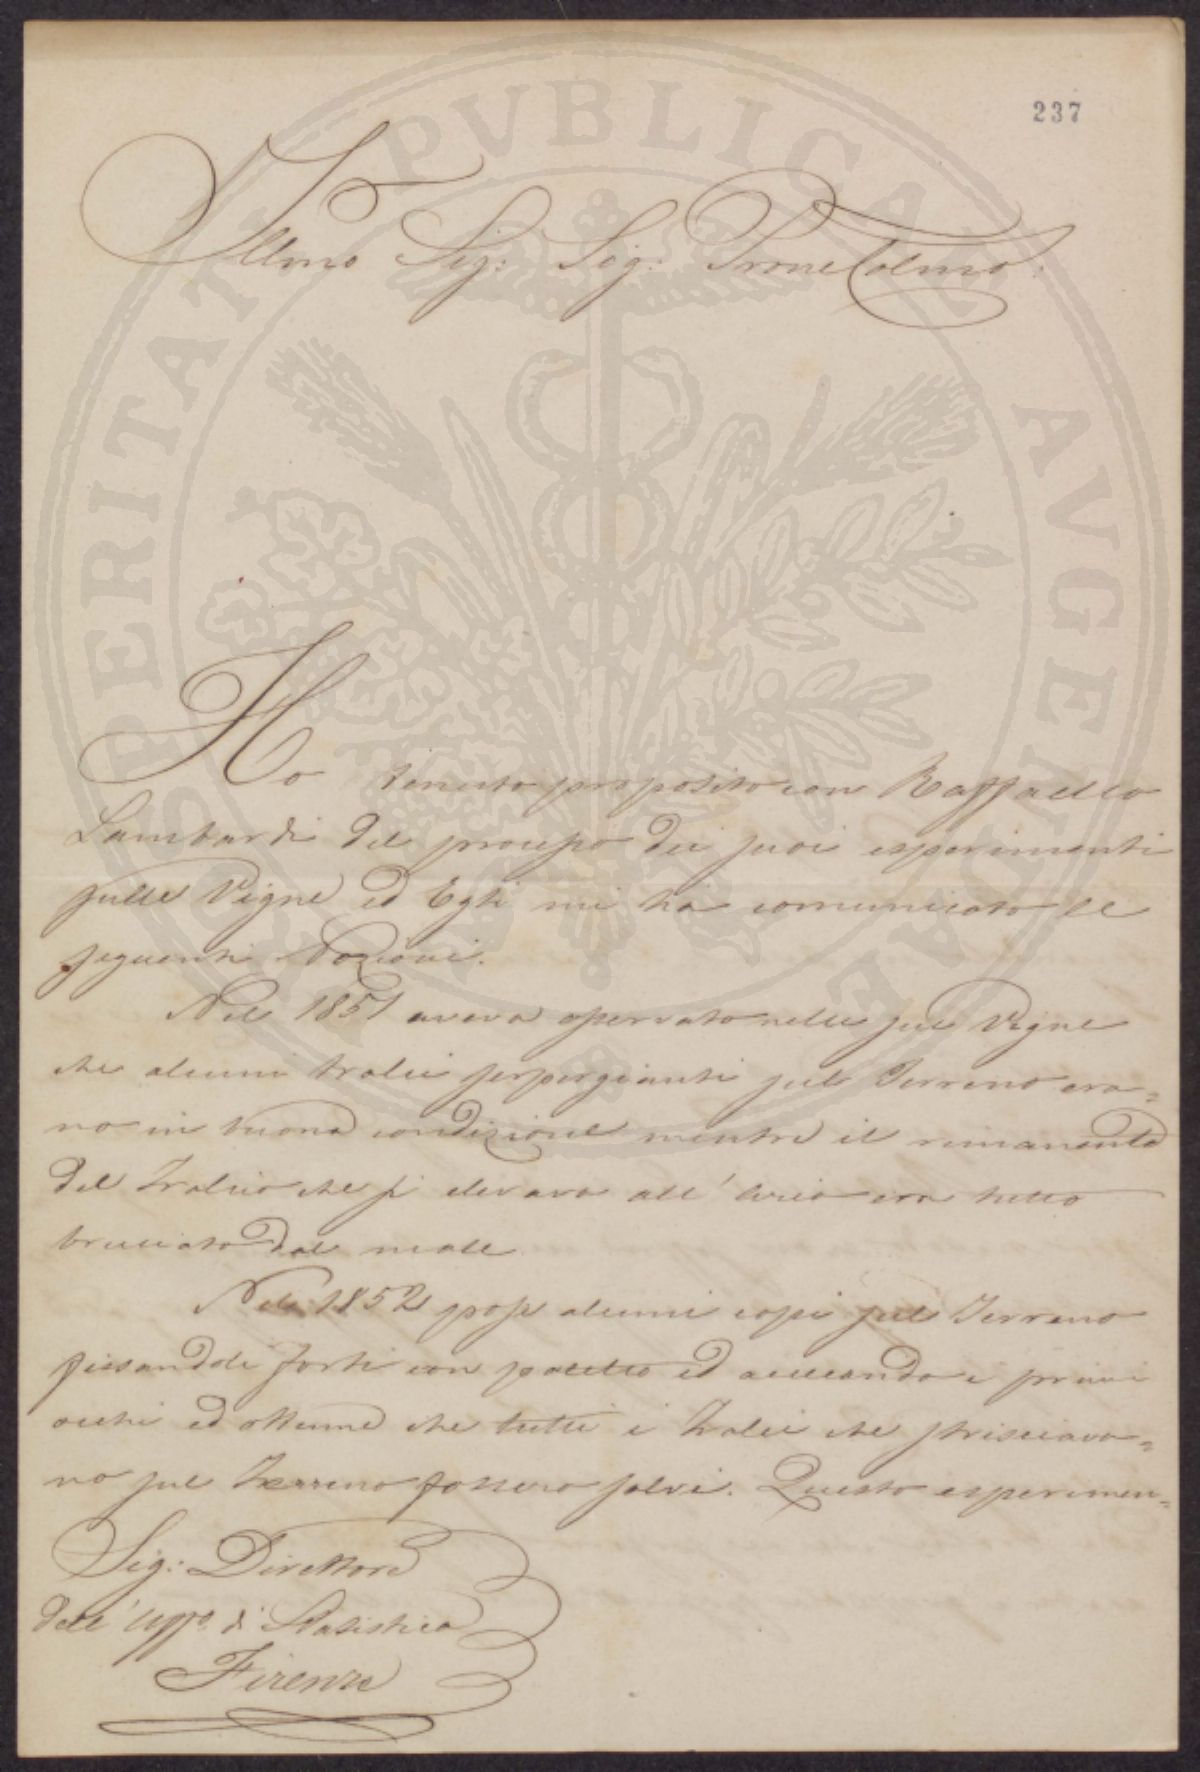 237
Illmo Sig: Sig: Prone Colmo:
Ho tenuto proposito con Raffaello
Lambardi del processo dei suoi esperimenti
sulle Vigne ed Egli mi ha comunicato le
seguenti Nozioni.
Nel 1851 aveva osservato nelle sue Vigne
che alcuni tralci serpeggianti sul Terreno era=
no in buona condizione mentre il rimanente
del Tralcio che si elevava all'aria era tutto
bruciato dal male
Nel 1852 pose alcuni capi sul Terreno
fissandoli forti con paletto ed accecando i primi
occhi ed ottenne che tutti i Tralci che strisciava=
no sul Terreno fossero salvi. Questo esperimen=
Sig: Direttore
dell'Uffo. di Statistica
Firenze
PVBLICAE AVGENDAE
PROSPERITATI